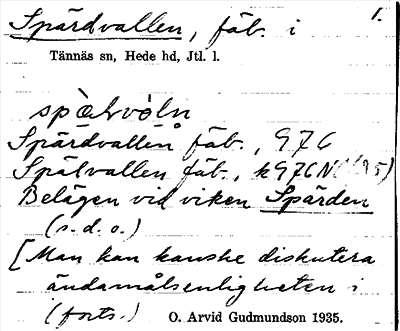 Spärdvallen, fäb. i 1.
Tännäs sn, Hede hd, Jtl. l.
Spärdvallen fäb., 97C
Spälvallen fäb., k97CN
Belägen vid viken Spärden
(s.d.o.)
[Man kan kanske diskutera
ändamålsenligheten i
(forts.) O. Arvid Gudmundson 1935.